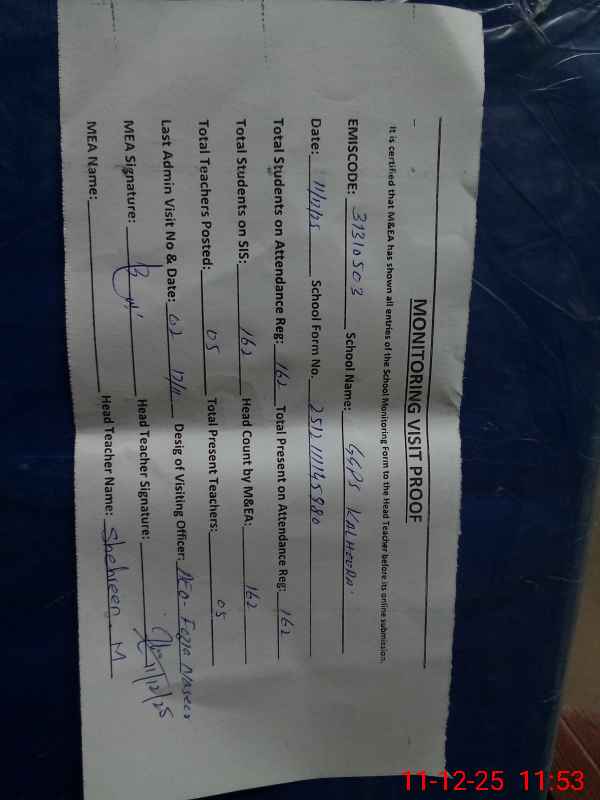 MONITORING VISIT PROOF
It is certified that M&EA has shown all entries of the School Monitoring Form to the Head Teacher before its online submission.
EMISCODE: 31310503 School Name: GGPS KALHOORA.
Date: 11/12/25 School Form No. 251211145980
Total Students on Attendance Reg: 162 Total Present on Attendance Reg: 162
Total Students on SIS: 162 Head Count by M&EA: 162
Total Teachers Posted: 05 Total Present Teachers: 05
Last Admin Visit No & Date: 02 17/11 Desig of Visiting Officer: AEO- Fozia Naseer
MEA Signature: Head Teacher Signature: 11/12/25
MEA Name: Head Teacher Name: Shehreen. M
11-12-25 11:53